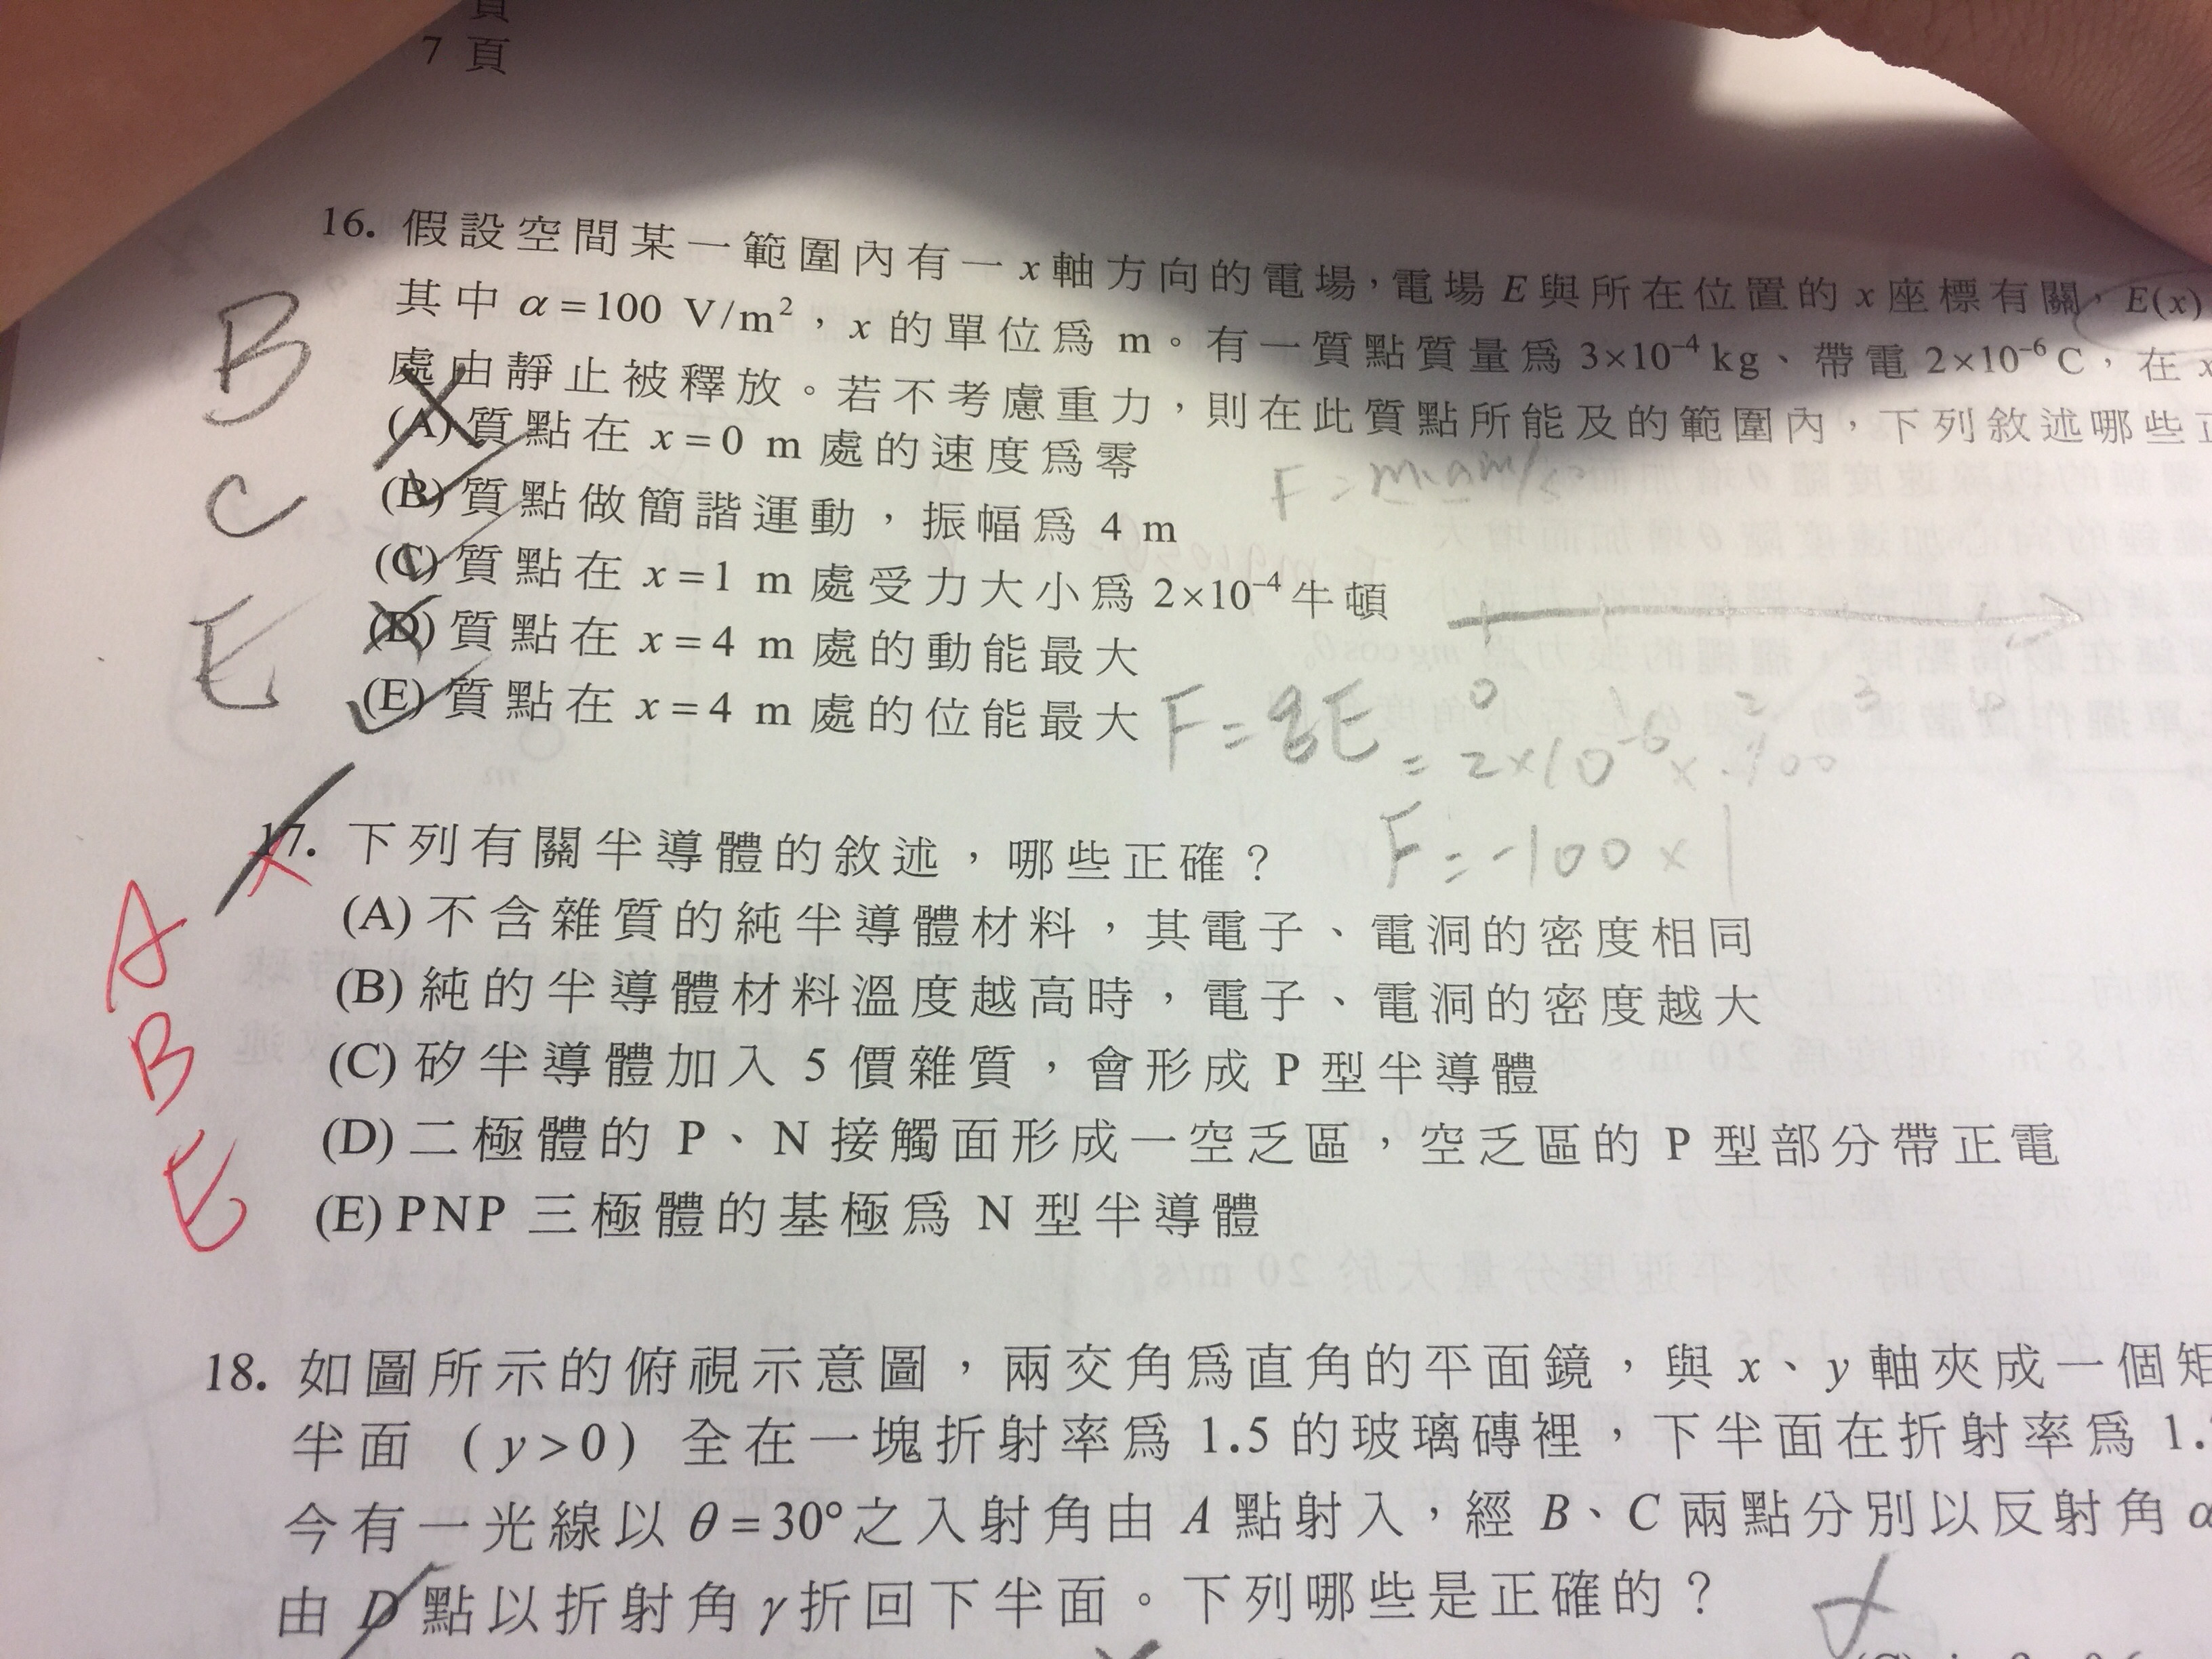 頁
7 頁
16. 假設空間某一範圍內有一 x 軸方向的電場，電場 E 與所在位置的 x 座標有關，E(x)
其中 α = 100 V/m²，x 的單位爲 m。有一質點質量爲 3×10⁻⁴ kg、帶電 2×10⁻⁶ C，在 x
處由靜止被釋放。若不考慮重力，則在此質點所能及的範圍內，下列敘述哪些正
(A) 質點在 x = 0 m 處的速度爲零
(B) 質點做簡諧運動，振幅爲 4 m
(C) 質點在 x = 1 m 處受力大小爲 2×10⁻⁴ 牛頓
(D) 質點在 x = 4 m 處的動能最大
(E) 質點在 x = 4 m 處的位能最大
B
C
E
0 1 2 3
F = qE = 2×10⁻⁶ × 100
F = -100 × 1
17. 下列有關半導體的敘述，哪些正確？
(A) 不含雜質的純半導體材料，其電子、電洞的密度相同
(B) 純的半導體材料溫度越高時，電子、電洞的密度越大
(C) 矽半導體加入 5 價雜質，會形成 P 型半導體
(D) 二極體的 P、N 接觸面形成一空乏區，空乏區的 P 型部分帶正電
(E) PNP 三極體的基極爲 N 型半導體
A
B
E
18. 如圖所示的俯視示意圖，兩交角爲直角的平面鏡，與 x、y 軸夾成一個矩
半面 (y>0) 全在一塊折射率爲 1.5 的玻璃磚裡，下半面在折射率爲 1.
今有一光線以 θ = 30° 之入射角由 A 點射入，經 B、C 兩點分別以反射角 α
由 D 點以折射角 γ 折回下半面。下列哪些是正確的？